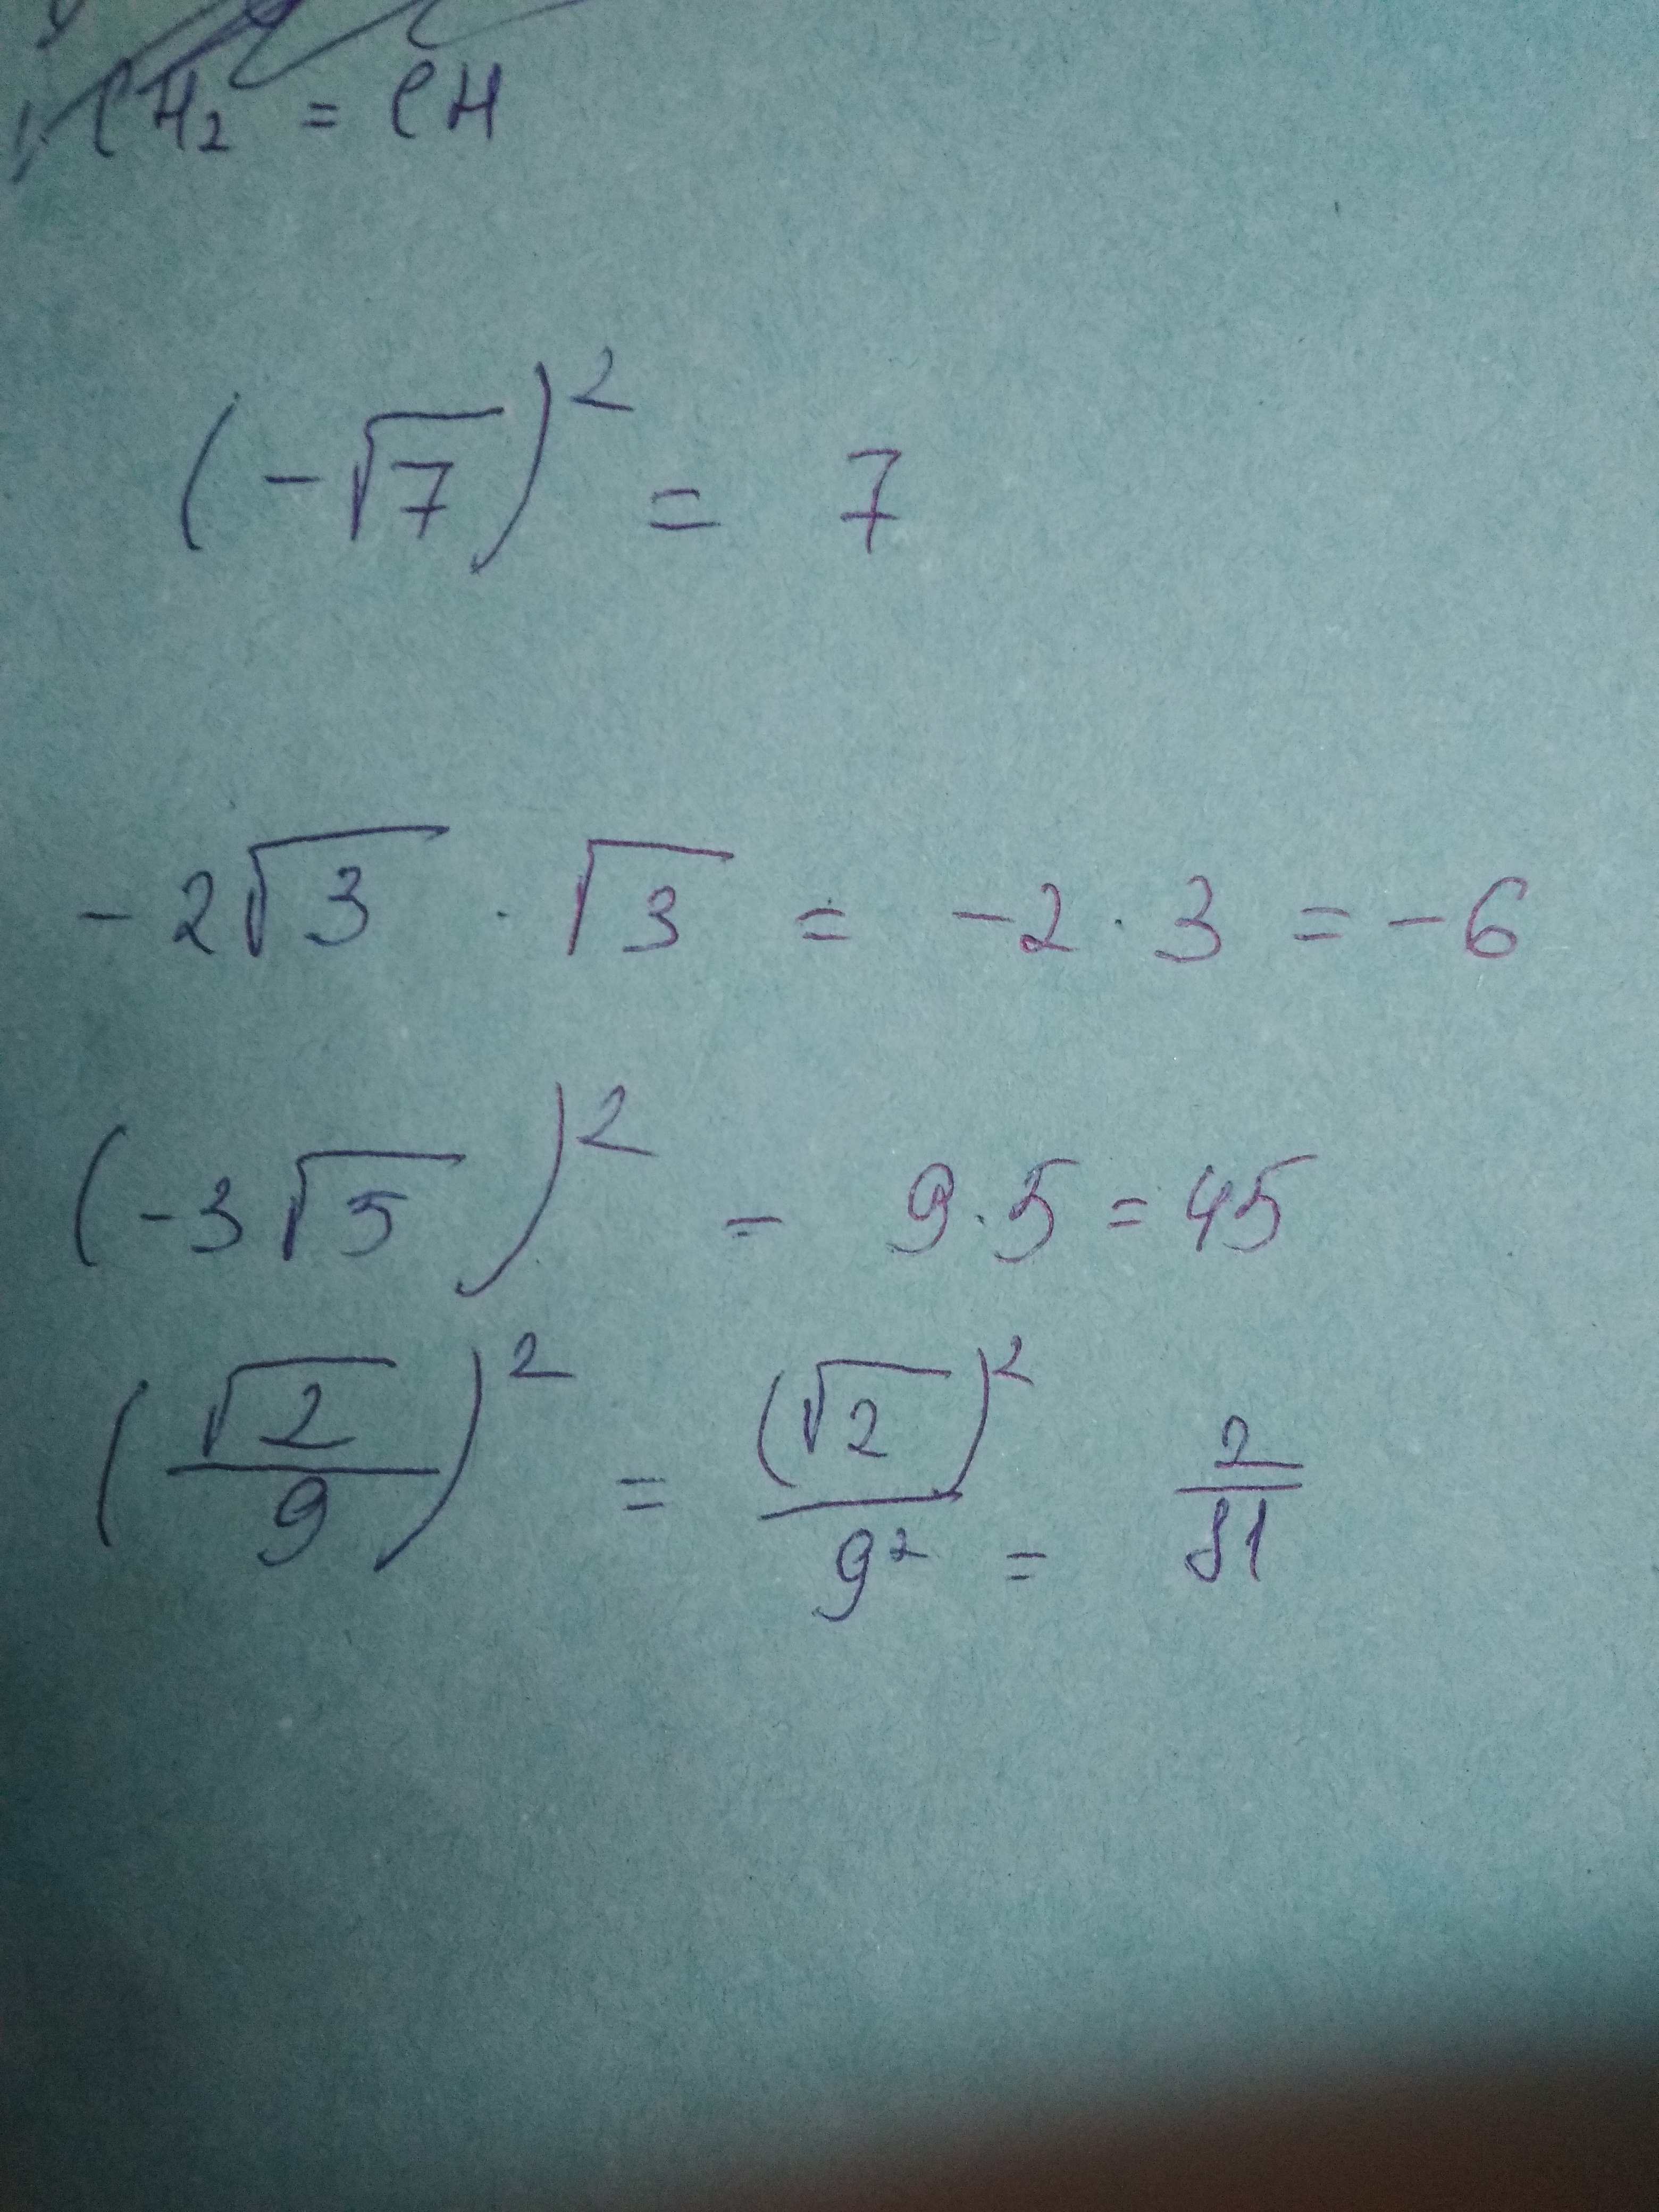 CH₂ = CH
(-√7)² = 7
-2√3 · √3 = -2 · 3 = -6
(-3√5)² = 9·5 = 45
(√2/9)² = (√2)²/9² = 2/81